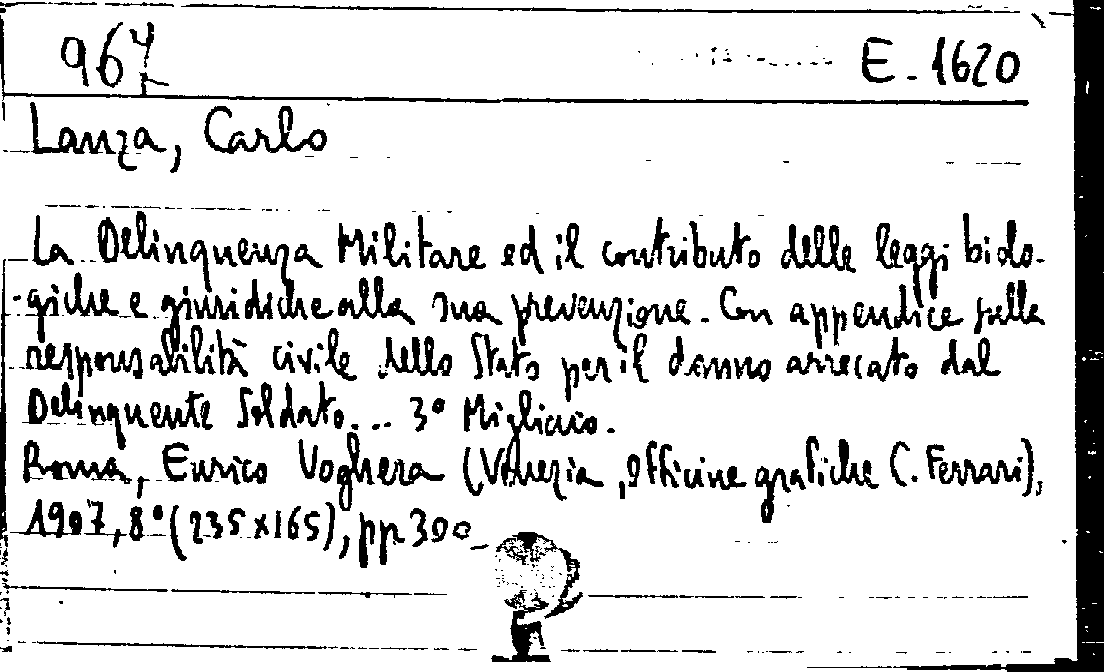 964 E. 1620
Lanza, Carlo
La Delinquenza Militare ed il contributo delle leggi biolo-
giche e giuridiche alla sua prevenzione. Con appendice sulla
responsabilità civile dello Stato per il danno arrecato dal
Delinquente Soldato... 3° Migliaio.
Roma, Enrico Voghera (Venezia, Officine grafiche C. Ferrari),
1907, 8° (235x165), pp. 300